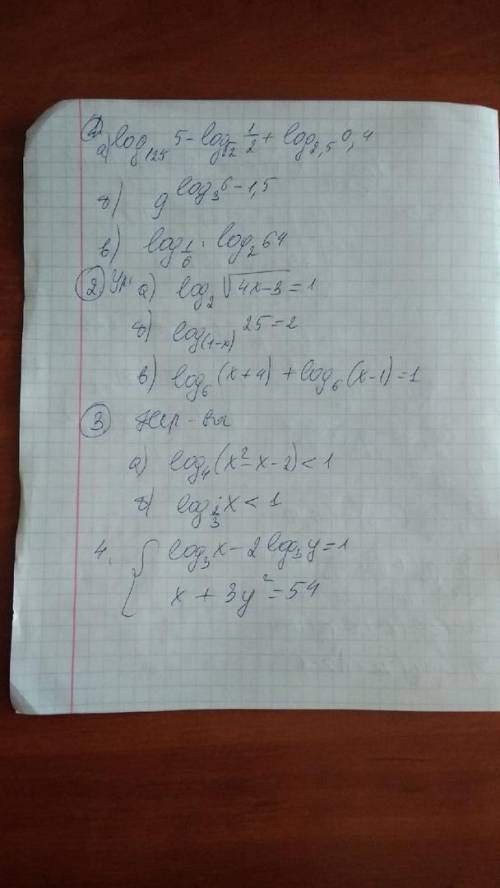 1
а) log₁₂₅ 5 - log_√2 1/2 + log₂,₅ 0,4
б) 9^(log₃ 6 - 1,5)
в) log_1/6 · log₂ 64
2 Ур. а) log₂ √(4x-3) = 1
б) log_(1-x) 25 = 2
в) log₆ (x+4) + log₆ (x-1) = 1
3 Нер-ва
а) log₄ (x² - x - 2) < 1
б) log_1/3 x < 1
4. { log₃ x - 2 log₃ y = 1
x + 3y² = 54